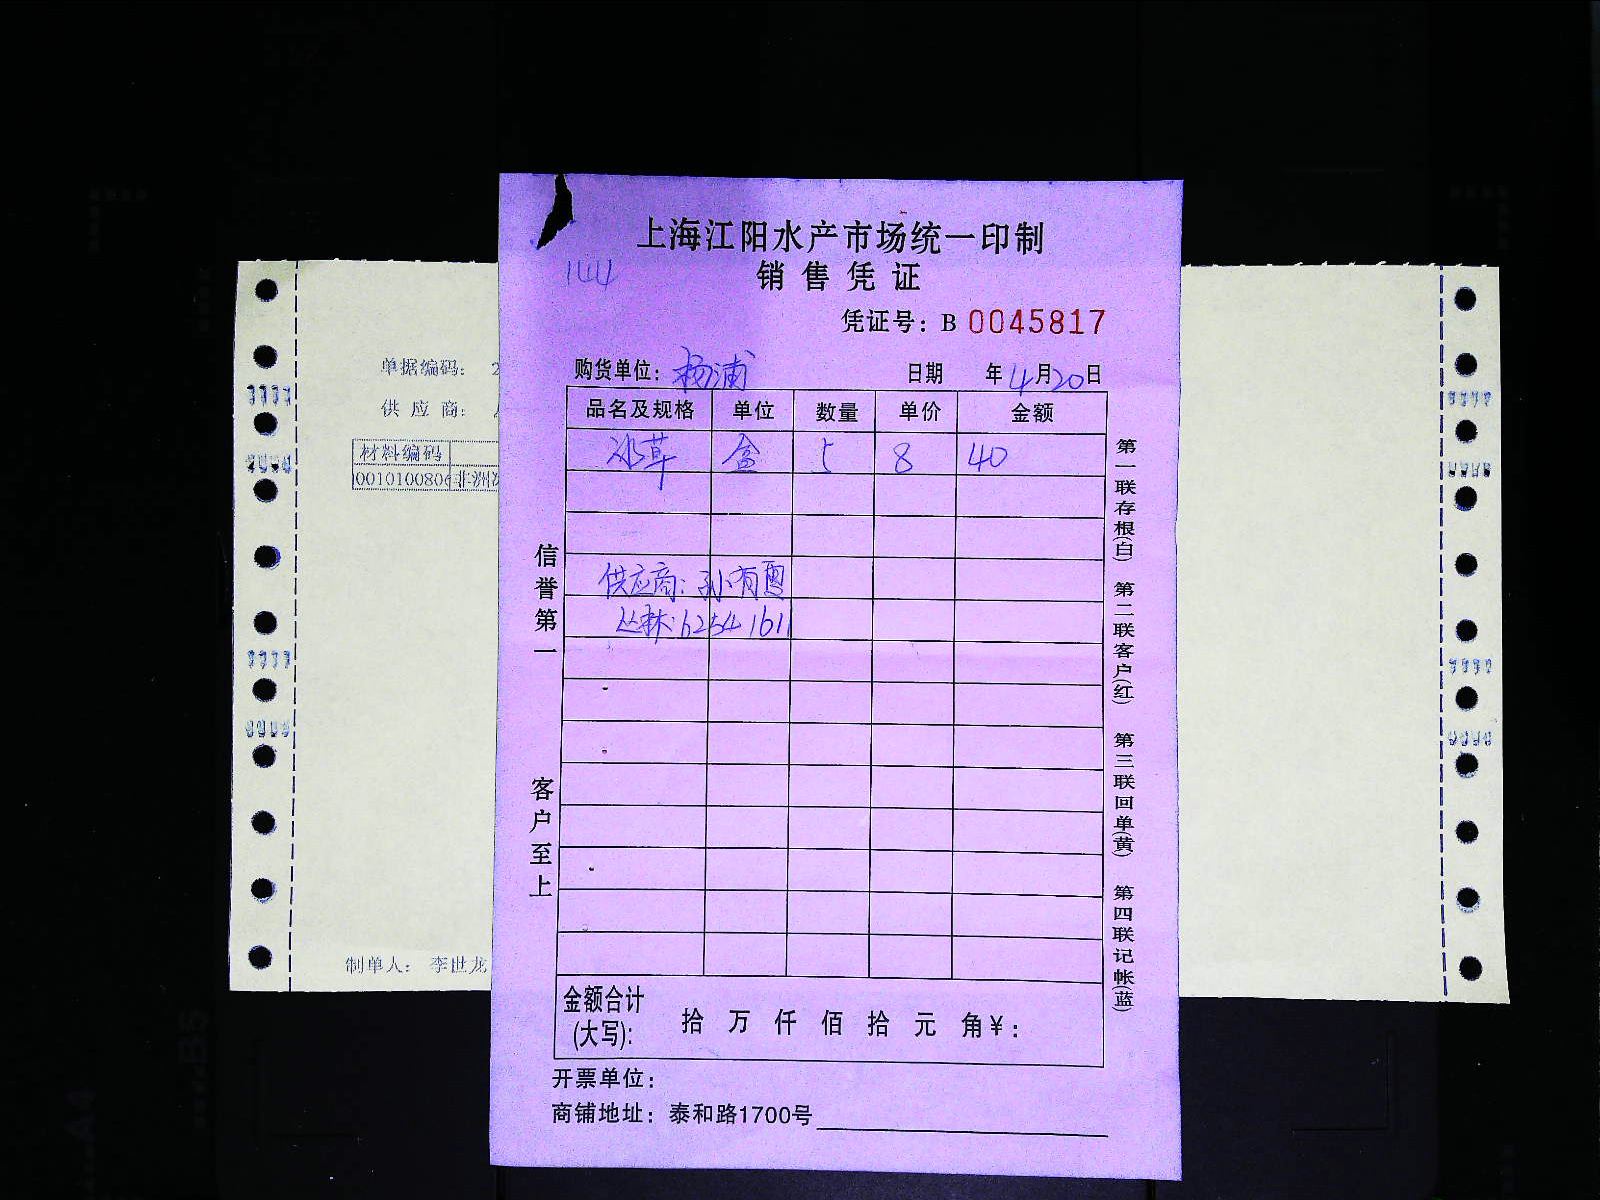 上海江阳水产市场统一印制
销售凭证
144
凭证号：B 0045817
购货单位：杨浦 日期 年4月20日
品名及规格 单位 数量 单价 金额
冰草 盒 5 8 40
供应商：孙有
丛林：62541611
信誉第一
客户至上
第一联存根(白) 第二联客户(红) 第三联回单(黄) 第四联记帐(蓝)
金额合计
(大写)： 拾 万 仟 佰 拾 元 角 ¥：
开票单位：
商铺地址：泰和路1700号
单据编码： 2
供 应 商：
材料编码
001010080 非洲
制单人： 李世龙